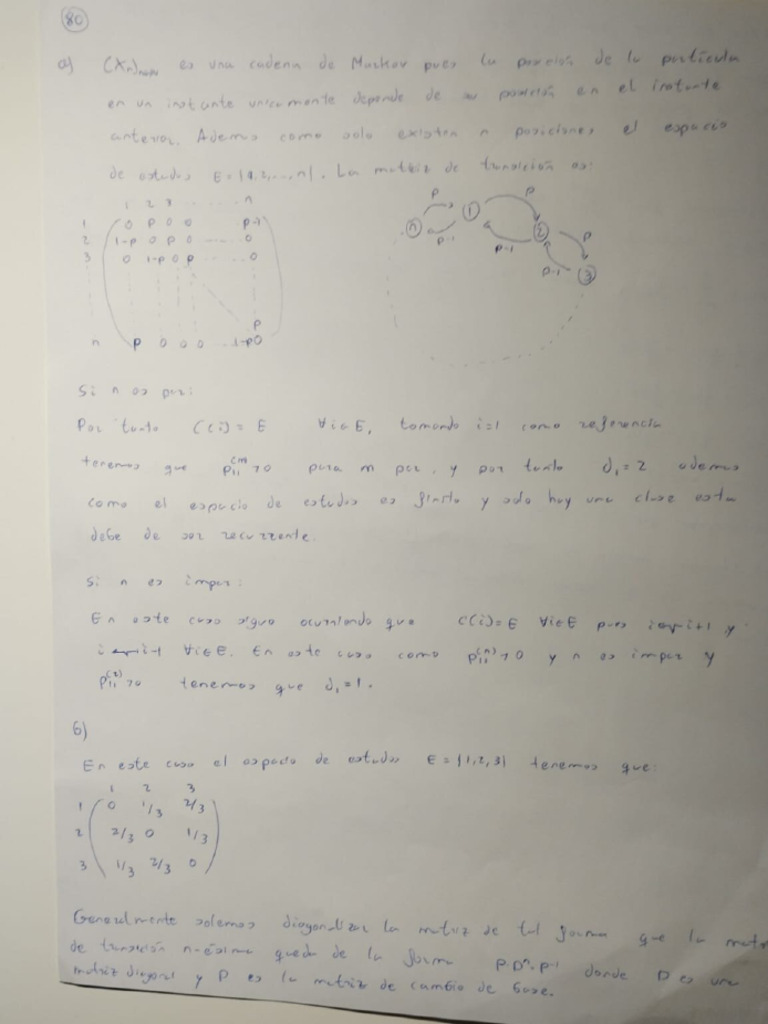 80
a) (Xn)n∈ℕ es una cadena de Markov pues la posición de la partícula
en un instante unicamente depende de su posición en el instante
anterior. Ademas como solo existen n posiciones el espacio
de estados E = {1,2,...,n}. La matriz de transición es:
1 2 3 ...... n
1 0 p 0 0 p-1
2 1-p 0 p 0 ...... 0
3 0 1-p 0 p ...... 0
p
n p 0 0 0 ... 1-p 0
n p p-1 1 p p-1 2 p p-1 3
Si n es par:
Por tanto C(i) = E ∀i∈E, tomando i=1 como referencia
tenemos que p₁₁^(m) >0 para m par, y por tanto d₁=2 ademas
como el espacio de estados es finito y solo hay una clase esta
debe de ser recurrente.
Si n es impar:
En este caso sigue ocurriendo que C(i)=E ∀i∈E pues i↔i+1 y
i↔i-1 ∀i∈E. En este caso como p₁₁^(n) >0 y n es impar y
p₁₁^(2) >0 tenemos que d₁=1.
b)
En este caso el espacio de estados E = {1,2,3} tenemos que:
1 2 3
1 0 1/3 2/3
2 2/3 0 1/3
3 1/3 2/3 0
Generalmente solemos diagonalizar la matriz de tal forma que la
de transición n-ésima queda de la forma P·Dⁿ·P⁻¹ donde D es una
matriz diagonal y P es la matriz de cambio de base.